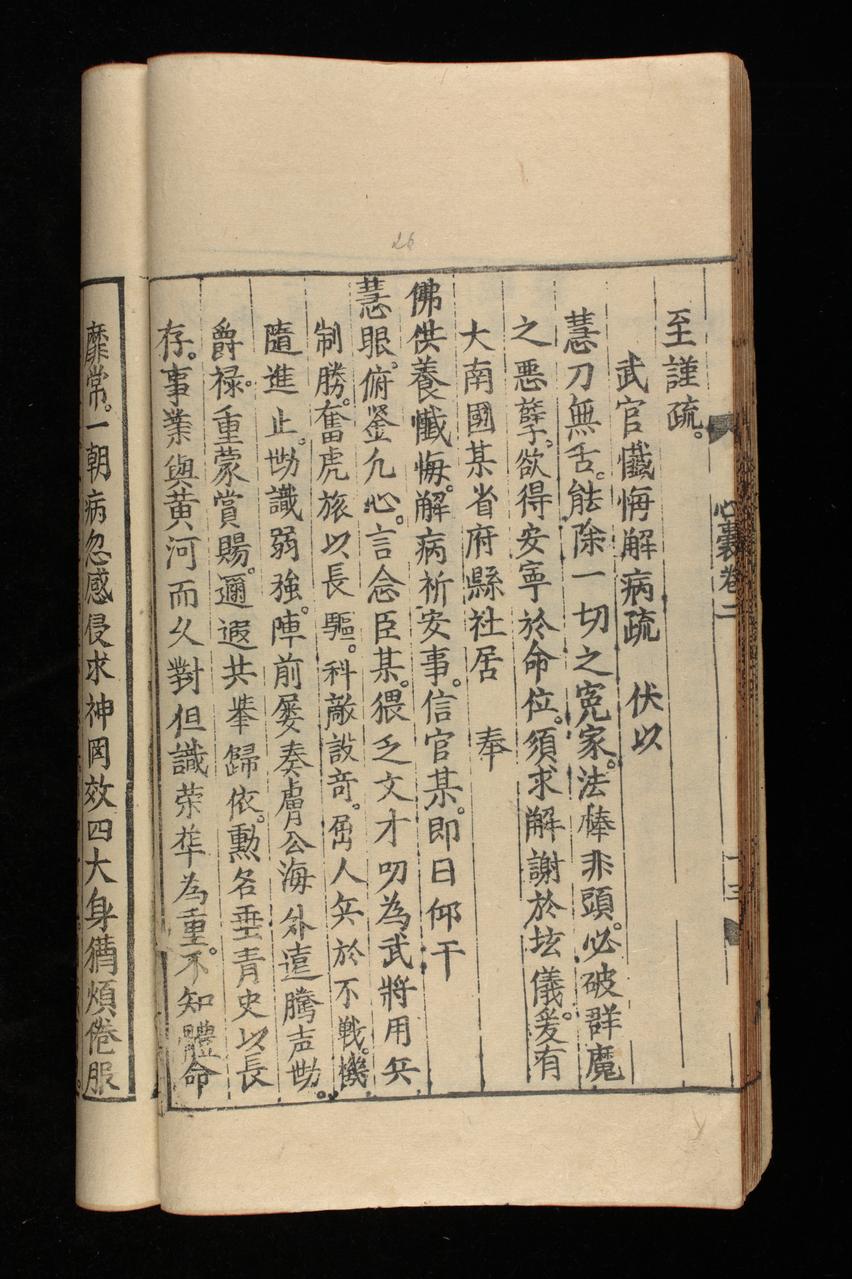 心囊卷二
至謹疏。
武官懺悔解病疏　伏以
慧刀無舌。能除一切之冤家。法棒非頭。必破群魔
之惡孽。欲得安寧於命位。須求解謝於坛儀。爰有
大南國某省府縣社居　奉
佛供養懺悔。解病祈安事。信官某。即日仰干
慧眼。俯鉴凡心。言念臣某。猥乏文才叨為武將用兵
制勝。奮虎旅以長驅。料敵設奇。屈人兵於不戦。機
隨進止。势識弱強。陣前屡奏膚公海外遠騰声势。
爵禄。重蒙賞賜。邇遐共拳歸依。勳名垂青史以長
存。事業與黄河而久對但識荣華為重。不知體命
靡常。一朝病忽感侵求神罔效四大身猶煩倦服
26